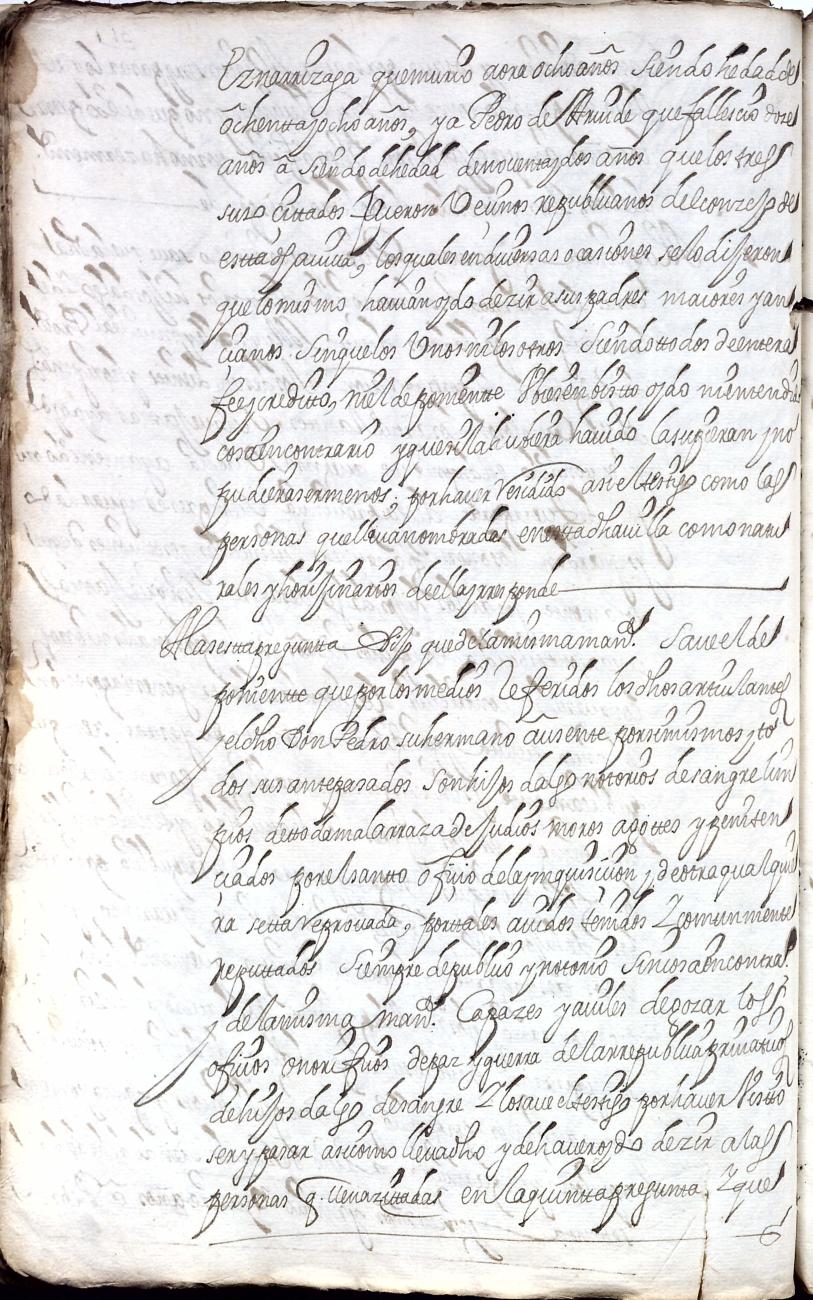 Yznarrizaga que murio aora ocho años siendo hedad de
ochenta y ocho años, y a Pedro de Arriude que fallescio doze
años a siendo de hedad de noventa y dos años que los tres
suso cittados fueron vecinos republicanos del conzejo de
estta dha villa, los quales en diversas ocasiones se lo dixeron
que lo mismo havian oydo dezir a sus padres maiores y an
cianos sin que los unos ni los otros siendo ttodos de entera
fee y creditto, ni el deponiente ubiesen bistto oydo ni entendido
cosa en contrario y que si la hubiera havido la supieran y no
pudiera ser menos, por haver residido asi el testigo como las
personas que lleva nombradas en estta dha villa como natu
rales y horijinarios de ella y rresponde
A la sesta pregunta Dijo que de la misma man.ª save el de
poniente que por los medios referidos los dhos articulantes
y el dho Don Pedro su hermano ausente por si mismos y to
dos sus antepasados son hijos dalgo notorios de sangre lim
pios de ttoda mala rraza de judios moros agottes y peniten
ciados por el santto oficio de la ynquisicion y de otra qualquie
ra setta reprovada, por tales avidos tenidos y comunmente
reputtados siempre de publico y notorio sin cosa en contra.º
y de la misma man.ª Capazes y aviles de gozar los
oficios onorificos de paz y guerra de la rrepublica pribatibos
de hijos dalgo de sangre y lo save el testigo por haver visto
ser y pasar asi como lleva dho y de haver oydo dezir a las
personas q. lleva zitadas en la quintta pregunta, y que